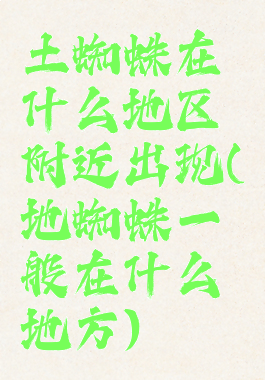 土蜘蛛在
什么地区
附近出现(
地蜘蛛一
般在什么
地方)